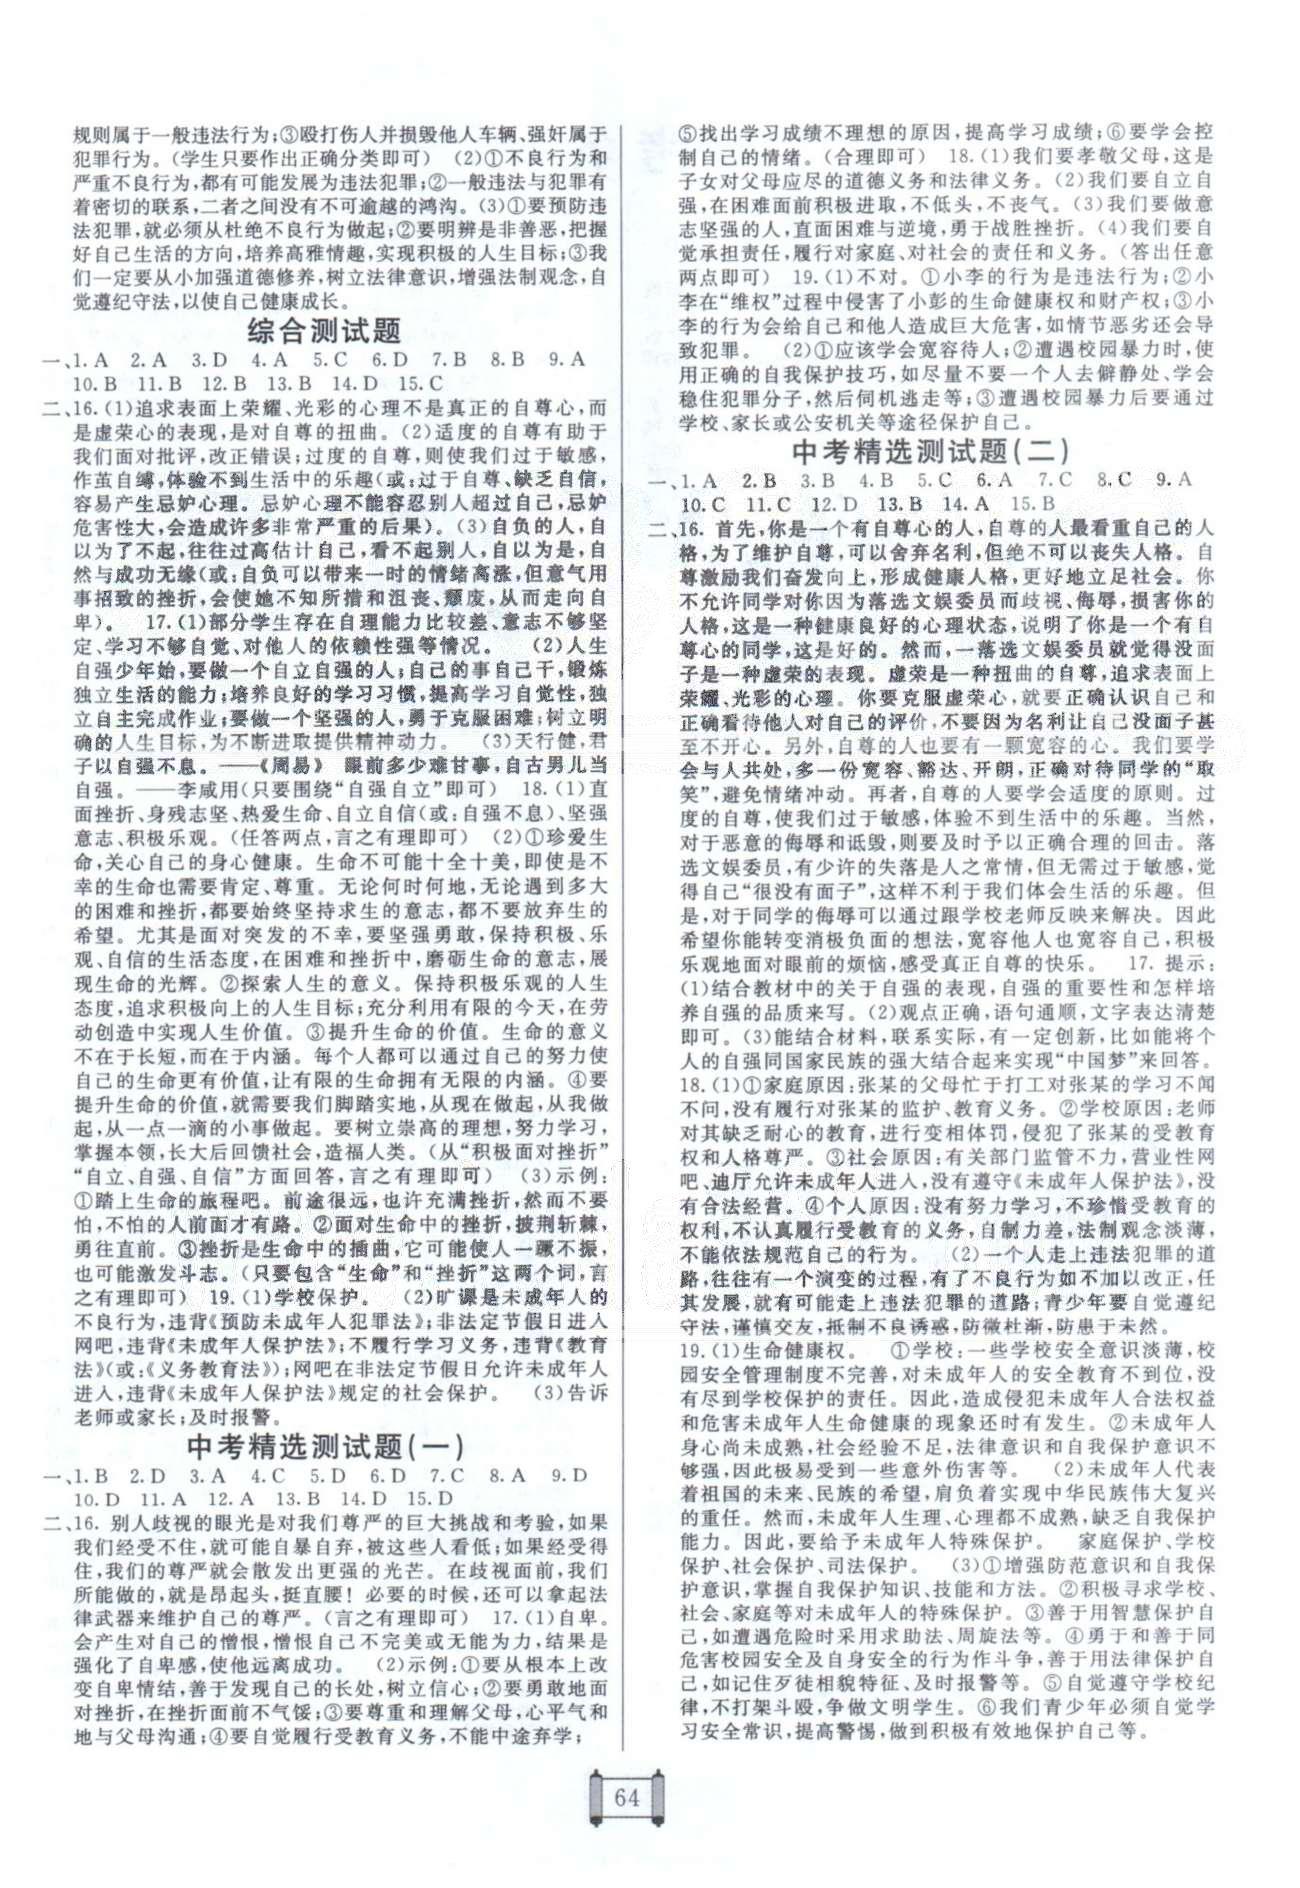 规则属于一般违法行为;③殴打伤人并损毁他人车辆、强奸属于
犯罪行为。(学生只要作出正确分类即可) (2)①不良行为和
严重不良行为,都有可能发展为违法犯罪;②一般违法与犯罪有
着密切的联系,二者之间没有不可逾越的鸿沟。(3)①要预防违
法犯罪,就必须从杜绝不良行为做起;②要明辨是非善恶,把握
好自己生活的方向,培养高雅情趣,实现积极的人生目标;③我
们一定要从小加强道德修养,树立法律意识,增强法制观念,自
觉遵纪守法,以使自己健康成长。
综合测试题
一、1. A 2. A 3. D 4. A 5. C 6. D 7. B 8. B 9. A
10. B 11. B 12. B 13. B 14. D 15. C
二、16. (1)追求表面上荣耀、光彩的心理不是真正的自尊心,而
是虚荣心的表现,是对自尊的扭曲。(2)适度的自尊有助于
我们面对批评,改正错误;过度的自尊,则使我们过于敏感,
作茧自缚,体验不到生活中的乐趣(或:过于自尊、缺乏自信,
容易产生忌妒心理。忌妒心理不能容忍别人超过自己,忌妒
危害性大,会造成许多非常严重的后果)。(3)自负的人,自
以为了不起,往往过高估计自己,看不起别人,自以为是,自
然与成功无缘(或:自负可以带来一时的情绪高涨,但意气用
事招致的挫折,会使她不知所措和沮丧、颓废,从而走向自
卑)。 17. (1)部分学生存在自理能力比较差、意志不够坚
定、学习不够自觉、对他人的依赖性强等情况。 (2)人生
自强少年始,要做一个自立自强的人;自己的事自己干,锻炼
独立生活的能力;培养良好的学习习惯,提高学习自觉性,独
立自主完成作业;要做一个坚强的人,勇于克服困难;树立明
确的人生目标,为不断进取提供精神动力。 (3)天行健,君
子以自强不息。——《周易》 眼前多少难甘事,自古男儿当
自强。——李咸用(只要围绕“自强自立”即可) 18. (1)直
面挫折、身残志坚、热爱生命、自立自信(或:自强不息)、坚强
意志、积极乐观。(任答两点,言之有理即可) (2)①珍爱生
命,关心自己的身心健康。生命不可能十全十美,即使是不
幸的生命也需要肯定、尊重。无论何时何地,无论遇到多大
的困难和挫折,都要始终坚持求生的意志,都不要放弃生的
希望。尤其是面对突发的不幸,要坚强勇敢,保持积极、乐
观、自信的生活态度,在困难和挫折中,磨砺生命的意志,展
现生命的光辉。②探索人生的意义。保持积极乐观的人生
态度,追求积极向上的人生目标;充分利用有限的今天,在劳
动创造中实现人生价值。③提升生命的价值。生命的意义
不在于长短,而在于内涵。每个人都可以通过自己的努力使
自己的生命更有价值,让有限的生命拥有无限的内涵。④要
提升生命的价值,就需要我们脚踏实地,从现在做起,从我做
起,从一点一滴的小事做起。要树立崇高的理想,努力学习,
掌握本领,长大后回馈社会,造福人类。(从“积极面对挫折”
“自立、自强、自信”方面回答,言之有理即可) (3)示例:
①踏上生命的旅程吧。前途很远,也许充满挫折,然而不要
怕,不怕的人前面才有路。②面对生命中的挫折,披荆斩棘,
勇往直前。③挫折是生命中的插曲,它可能使人一蹶不振,
也可能激发斗志。(只要包含“生命”和“挫折”这两个词,言
之有理即可) 19. (1)学校保护。 (2)旷课是未成年人的
不良行为,违背《预防未成年人犯罪法》;非法定节假日进入
网吧,违背《未成年人保护法》;不履行学习义务,违背《教育
法》(或:《义务教育法》);网吧在非法定节假日允许未成年人
进入,违背《未成年人保护法》规定的社会保护。 (3)告诉
老师或家长;及时报警。
中考精选测试题(一)
一、1. B 2. D 3. A 4. C 5. D 6. D 7. C 8. A 9. D
10. D 11. A 12. A 13. B 14. D 15. D
二、16. 别人歧视的眼光是对我们尊严的巨大挑战和考验,如果
我们经受不住,就可能自暴自弃,被这些人看低;如果经受得
住,我们的尊严就会散发出更强的光芒。在歧视面前,我们
所能做的,就是昂起头,挺直腰! 必要的时候,还可以拿起法
律武器来维护自己的尊严。(言之有理即可) 17. (1)自卑。
会产生对自己的憎恨,憎恨自己不完美或无能为力,结果是
强化了自卑感,使他远离成功。 (2)示例:①要从根本上改
变自卑情结,善于发现自己的长处,树立信心;②要勇敢地面
对挫折,在挫折面前不气馁;③要尊重和理解父母,心平气和
地与父母沟通;④要自觉履行受教育义务,不能中途弃学;
⑤找出学习成绩不理想的原因,提高学习成绩;⑥要学会控
制自己的情绪。(合理即可) 18. (1)我们要孝敬父母,这是
子女对父母应尽的道德义务和法律义务。(2)我们要自立自
强,在困难面前积极进取,不低头,不丧气。(3)我们要做意
志坚强的人,直面困难与逆境,勇于战胜挫折。(4)我们要自
觉承担责任,履行对家庭、对社会的责任和义务。(答出任意
两点即可) 19. (1)不对。①小李的行为是违法行为;②小
李在“维权”过程中侵害了小彭的生命健康权和财产权;③小
李的行为会给自己和他人造成巨大危害,如情节恶劣还会导
致犯罪。 (2)①应该学会宽容待人;②遭遇校园暴力时,使
用正确的自我保护技巧,如尽量不要一个人去僻静处、学会
稳住犯罪分子,然后伺机逃走等;③遭遇校园暴力后要通过
学校、家长或公安机关等途径保护自己。
中考精选测试题(二)
一、1. A 2. B 3. B 4. B 5. C 6. A 7. C 8. C 9. A
10. C 11. C 12. D 13. B 14. A 15. B
二、16. 首先,你是一个有自尊心的人,自尊的人最看重自己的人
格,为了维护自尊,可以舍弃名利,但绝不可以丧失人格。自
尊激励我们奋发向上,形成健康人格,更好地立足社会。你
不允许同学对你因为落选文娱委员而歧视、侮辱,损害你的
人格,这是一种健康良好的心理状态,说明了你是一个有自
尊心的同学,这是好的。然而,一落选文娱委员就觉得没面
子是一种虚荣的表现。虚荣是一种扭曲的自尊,追求表面上
荣耀、光彩的心理。你要克服虚荣心,就要正确认识自己和
正确看待他人对自己的评价,不要因为名利让自己没面子甚
至不开心。另外,自尊的人也要有一颗宽容的心。我们要学
会与人共处,多一份宽容、豁达、开朗,正确对待同学的“取
笑”,避免情绪冲动。再者,自尊的人要学会适度的原则。过
度的自尊,使我们过于敏感,体验不到生活中的乐趣。当然,
对于恶意的侮辱和诋毁,则要及时予以正确合理的回击。落
选文娱委员,有少许的失落是人之常情,但无须过于敏感,觉
得自己“很没有面子”,这样不利于我们体会生活的乐趣。但
是,对于同学的侮辱可以通过跟学校老师反映来解决。因此
希望你能转变消极负面的想法,宽容他人也宽容自己,积极
乐观地面对眼前的烦恼,感受真正自尊的快乐。 17. 提示:
(1)结合教材中的关于自强的表现,自强的重要性和怎样培
养自强的品质来写。(2)观点正确,语句通顺,文字表达清楚
即可。(3)能结合材料,联系实际,有一定创新,比如能将个
人的自强同国家民族的强大结合起来实现“中国梦”来回答。
18. (1)①家庭原因:张某的父母忙于打工对张某的学习不闻
不问,没有履行对张某的监护、教育义务。②学校原因:老师
对其缺乏耐心的教育,进行变相体罚,侵犯了张某的受教育
权和人格尊严。③社会原因:有关部门监管不力,营业性网
吧、迪厅允许未成年人进入,没有遵守《未成年人保护法》,没
有合法经营。④个人原因:没有努力学习,不珍惜受教育的
权利,不认真履行受教育的义务,自制力差,法制观念淡薄,
不能依法规范自己的行为。 (2)一个人走上违法犯罪的道
路,往往有一个演变的过程,有了不良行为如不加以改正,任
其发展,就有可能走上违法犯罪的道路;青少年要自觉遵纪
守法,谨慎交友,抵制不良诱惑,防微杜渐,防患于未然。
19. (1)生命健康权。 ①学校:一些学校安全意识淡薄,校
园安全管理制度不完善,对未成年人的安全教育不到位,没
有尽到学校保护的责任。因此,造成侵犯未成年人合法权益
和危害未成年人生命健康的现象还时有发生。②未成年人
身心尚未成熟,社会经验不足,法律意识和自我保护意识不
够强,因此极易受到一些意外伤害等。 (2)未成年人代表
着祖国的未来、民族的希望,肩负着实现中华民族伟大复兴
的重任。然而,未成年人生理、心理都不成熟,缺乏自我保护
能力。因此,要给予未成年人特殊保护。 家庭保护、学校
保护、社会保护、司法保护。 (3)①增强防范意识和自我保
护意识,掌握自我保护知识、技能和方法。②积极寻求学校、
社会、家庭等对未成年人的特殊保护。③善于用智慧保护自
己,如遭遇危险时采用求助法、周旋法等。④勇于和善于同
危害校园安全及自身安全的行为作斗争,善于用法律保护自
己,如记住歹徒相貌特征、及时报警等。⑤自觉遵守学校纪
律,不打架斗殴,争做文明学生。⑥我们青少年必须自觉学
习安全常识,提高警惕,做到积极有效地保护自己等。
64